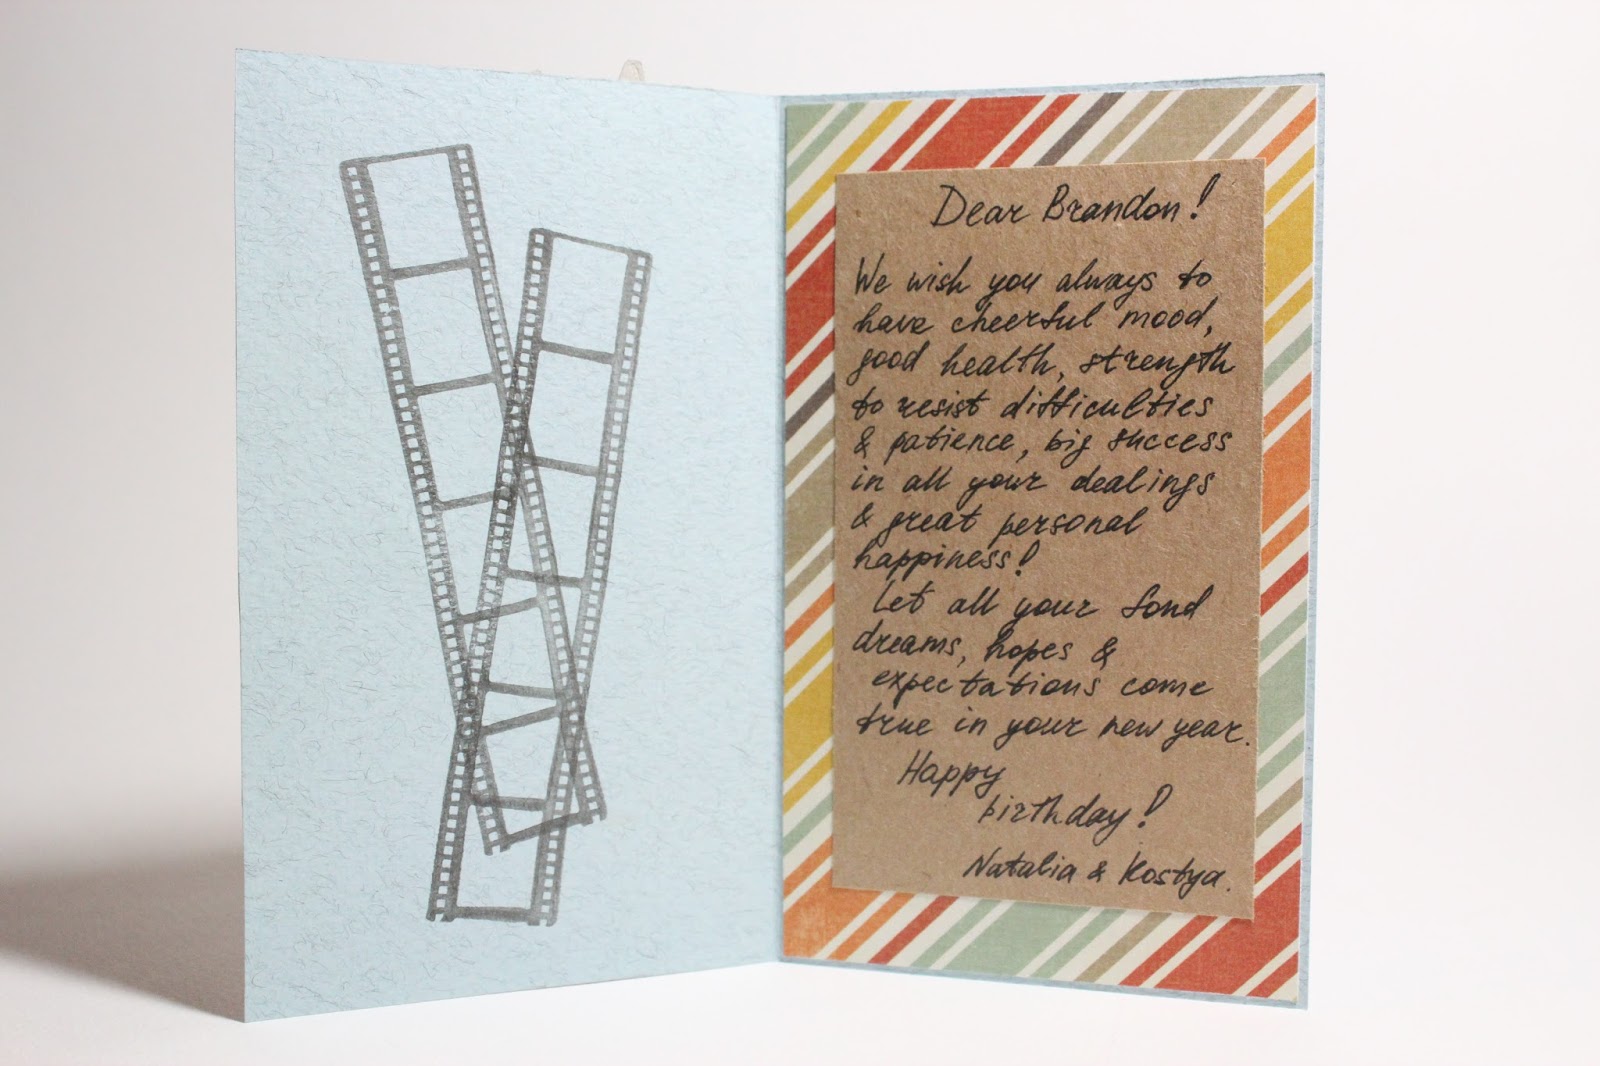 Dear Brandon!
We wish you always to
have cheerful mood,
good health, strength
to resist difficulties
& patience, big success
in all your dealings
& great personal
happiness!
Let all your fond
dreams, hopes &
expectations come
true in your new year.
Happy
birthday!
Natalia & Kostya.